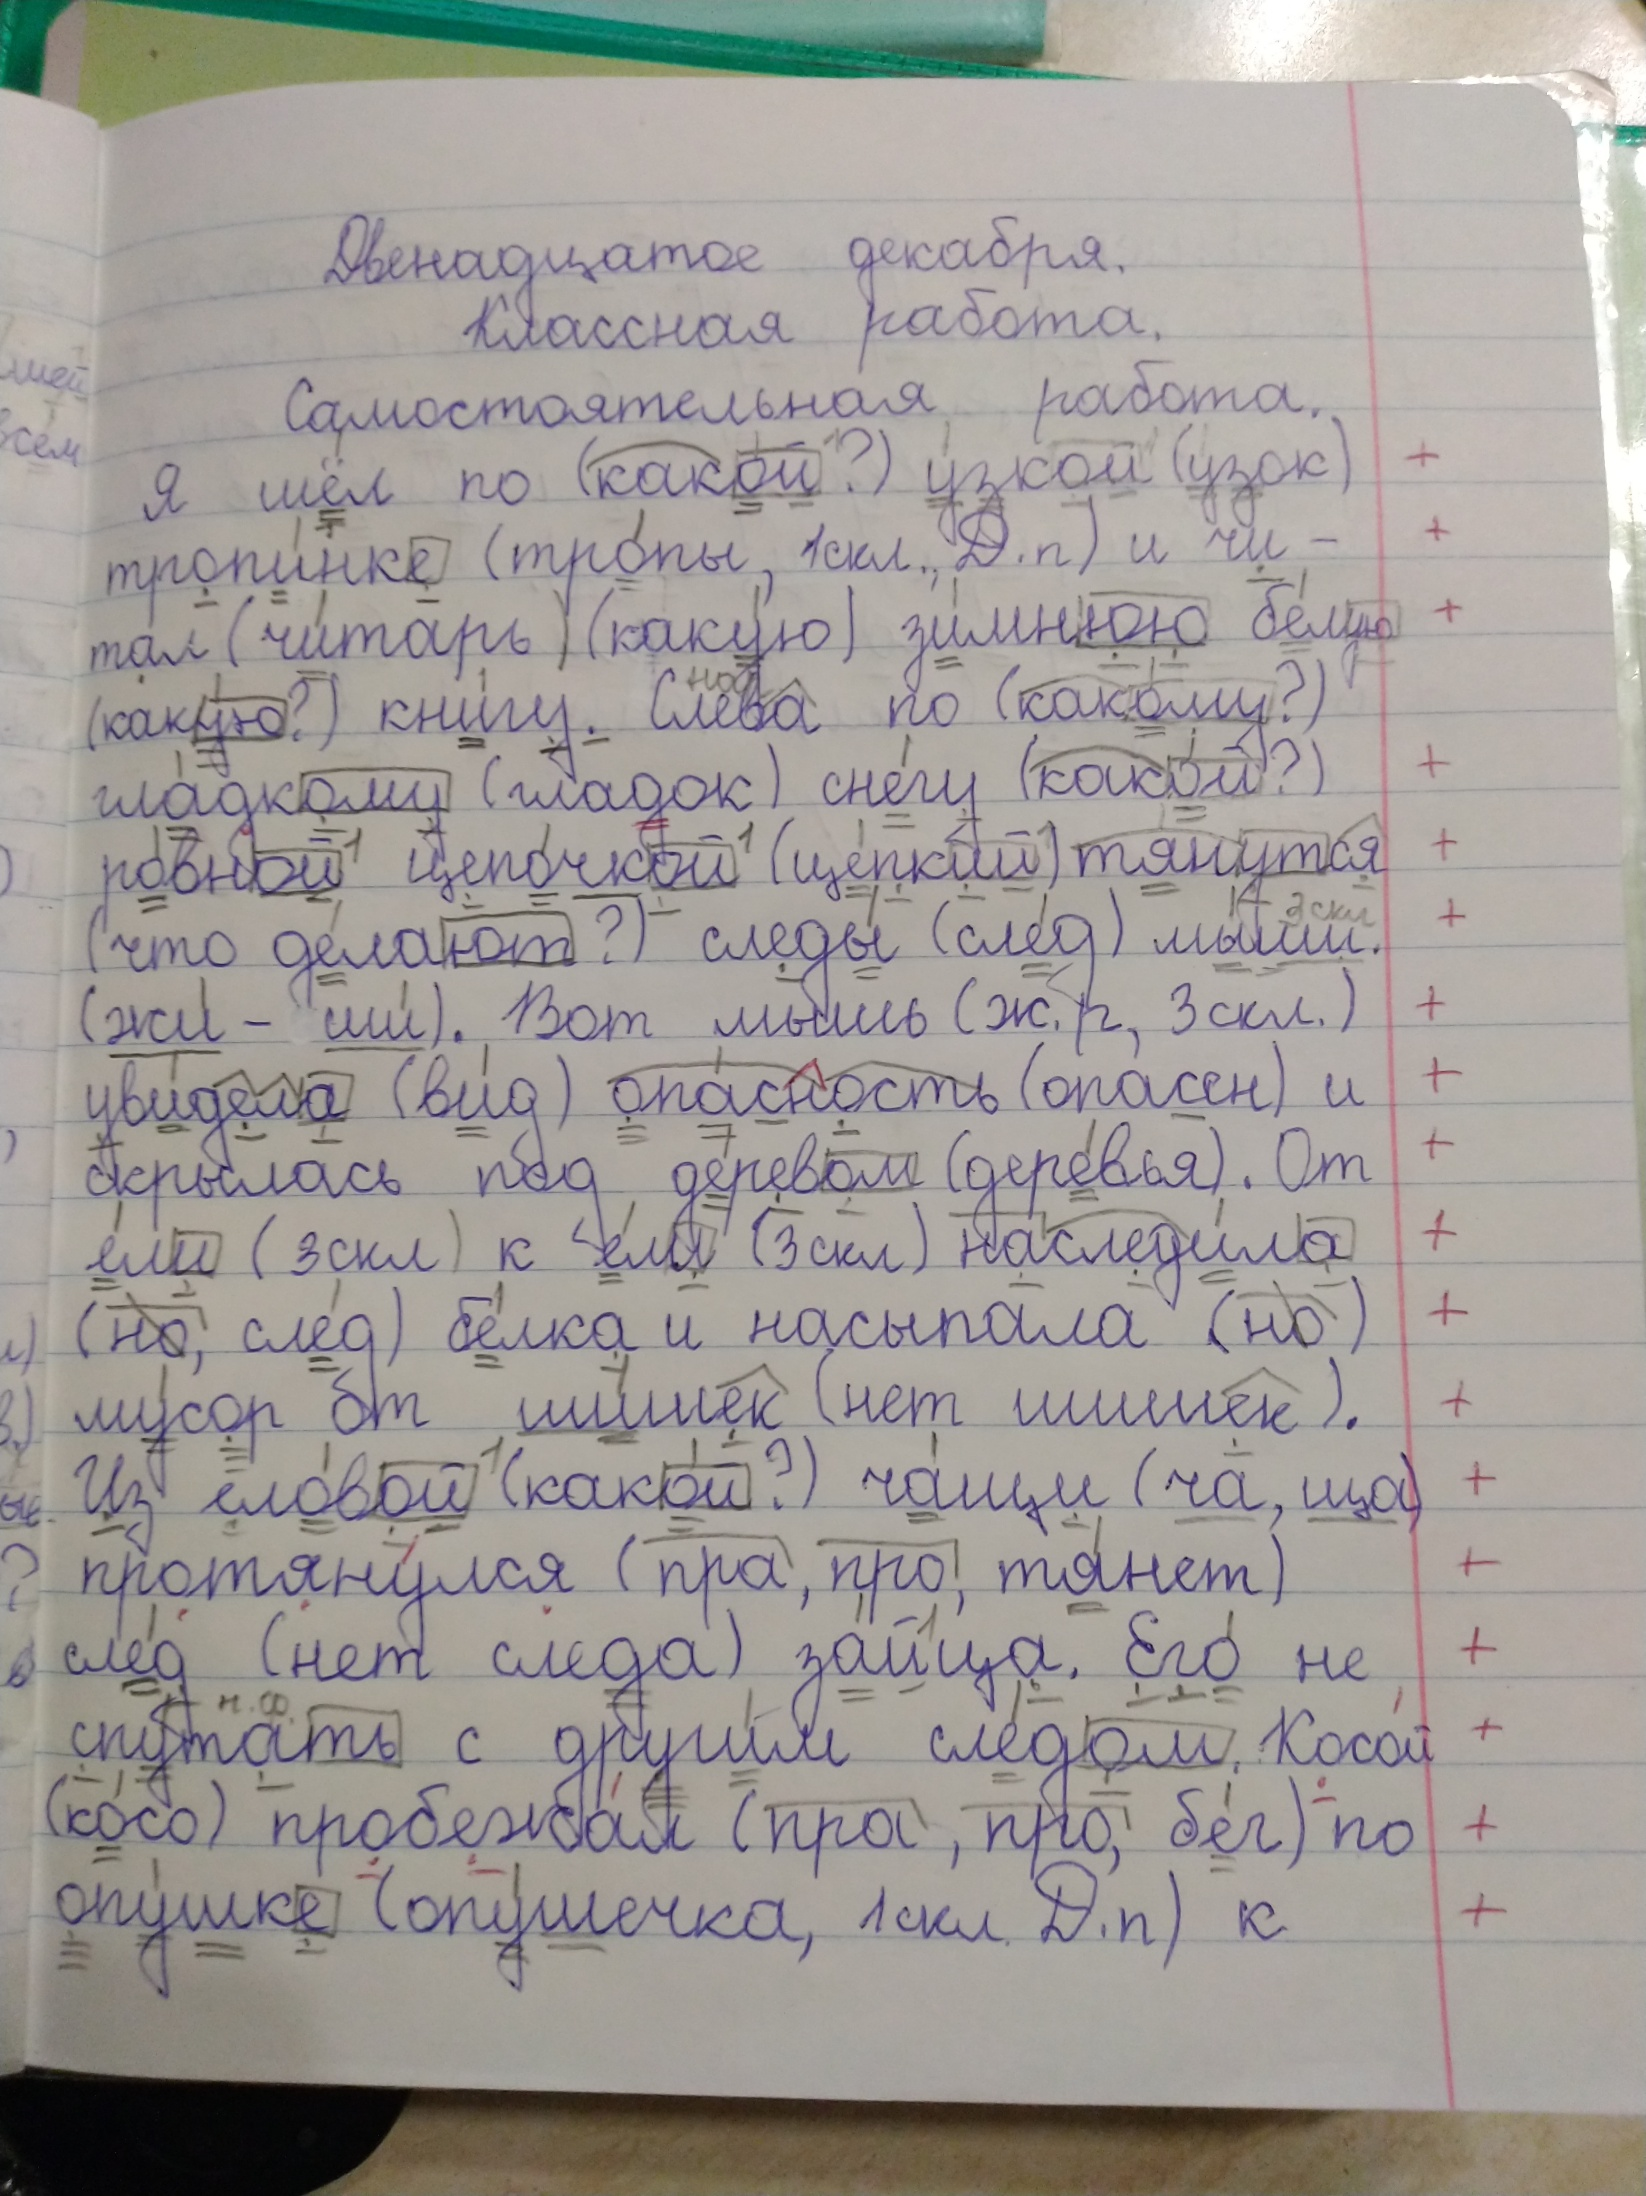 Двенадцатое декабря.
Классная работа.
Самостоятельная работа.
Я шёл по (какой?) узкой (узок)
тропинке (тропы, 1скл., Д.п) и чи-
тал (читарь) (какую) зимнюю белую
(какую?) книгу. Слева по (какому?)
гладкому (гладок) снегу (какой?)
ровной цепочкой (цепкий) тянутся
(что делают?) следы (след) мыши.
3скл
(жи - ши). Вот мышь (ж.р, 3скл.)
увидела (вид) опасность (опасен) и
скрылась под деревом (деревья). От
ели (3скл) к ели (3скл) наследила
(но, след) белка и насыпала (но)
мусор от шишек (нет шишек).
Из еловой (какой?) чащи (ча, ща)
протянулся (пра, про, тянет)
след (нет следа) зайца. Его не
н.ф.
спутать с другим следом. Косой
(косо) пробежал (пра, про, бег) по
опушке (опушечка, 1скл. Д.п) к